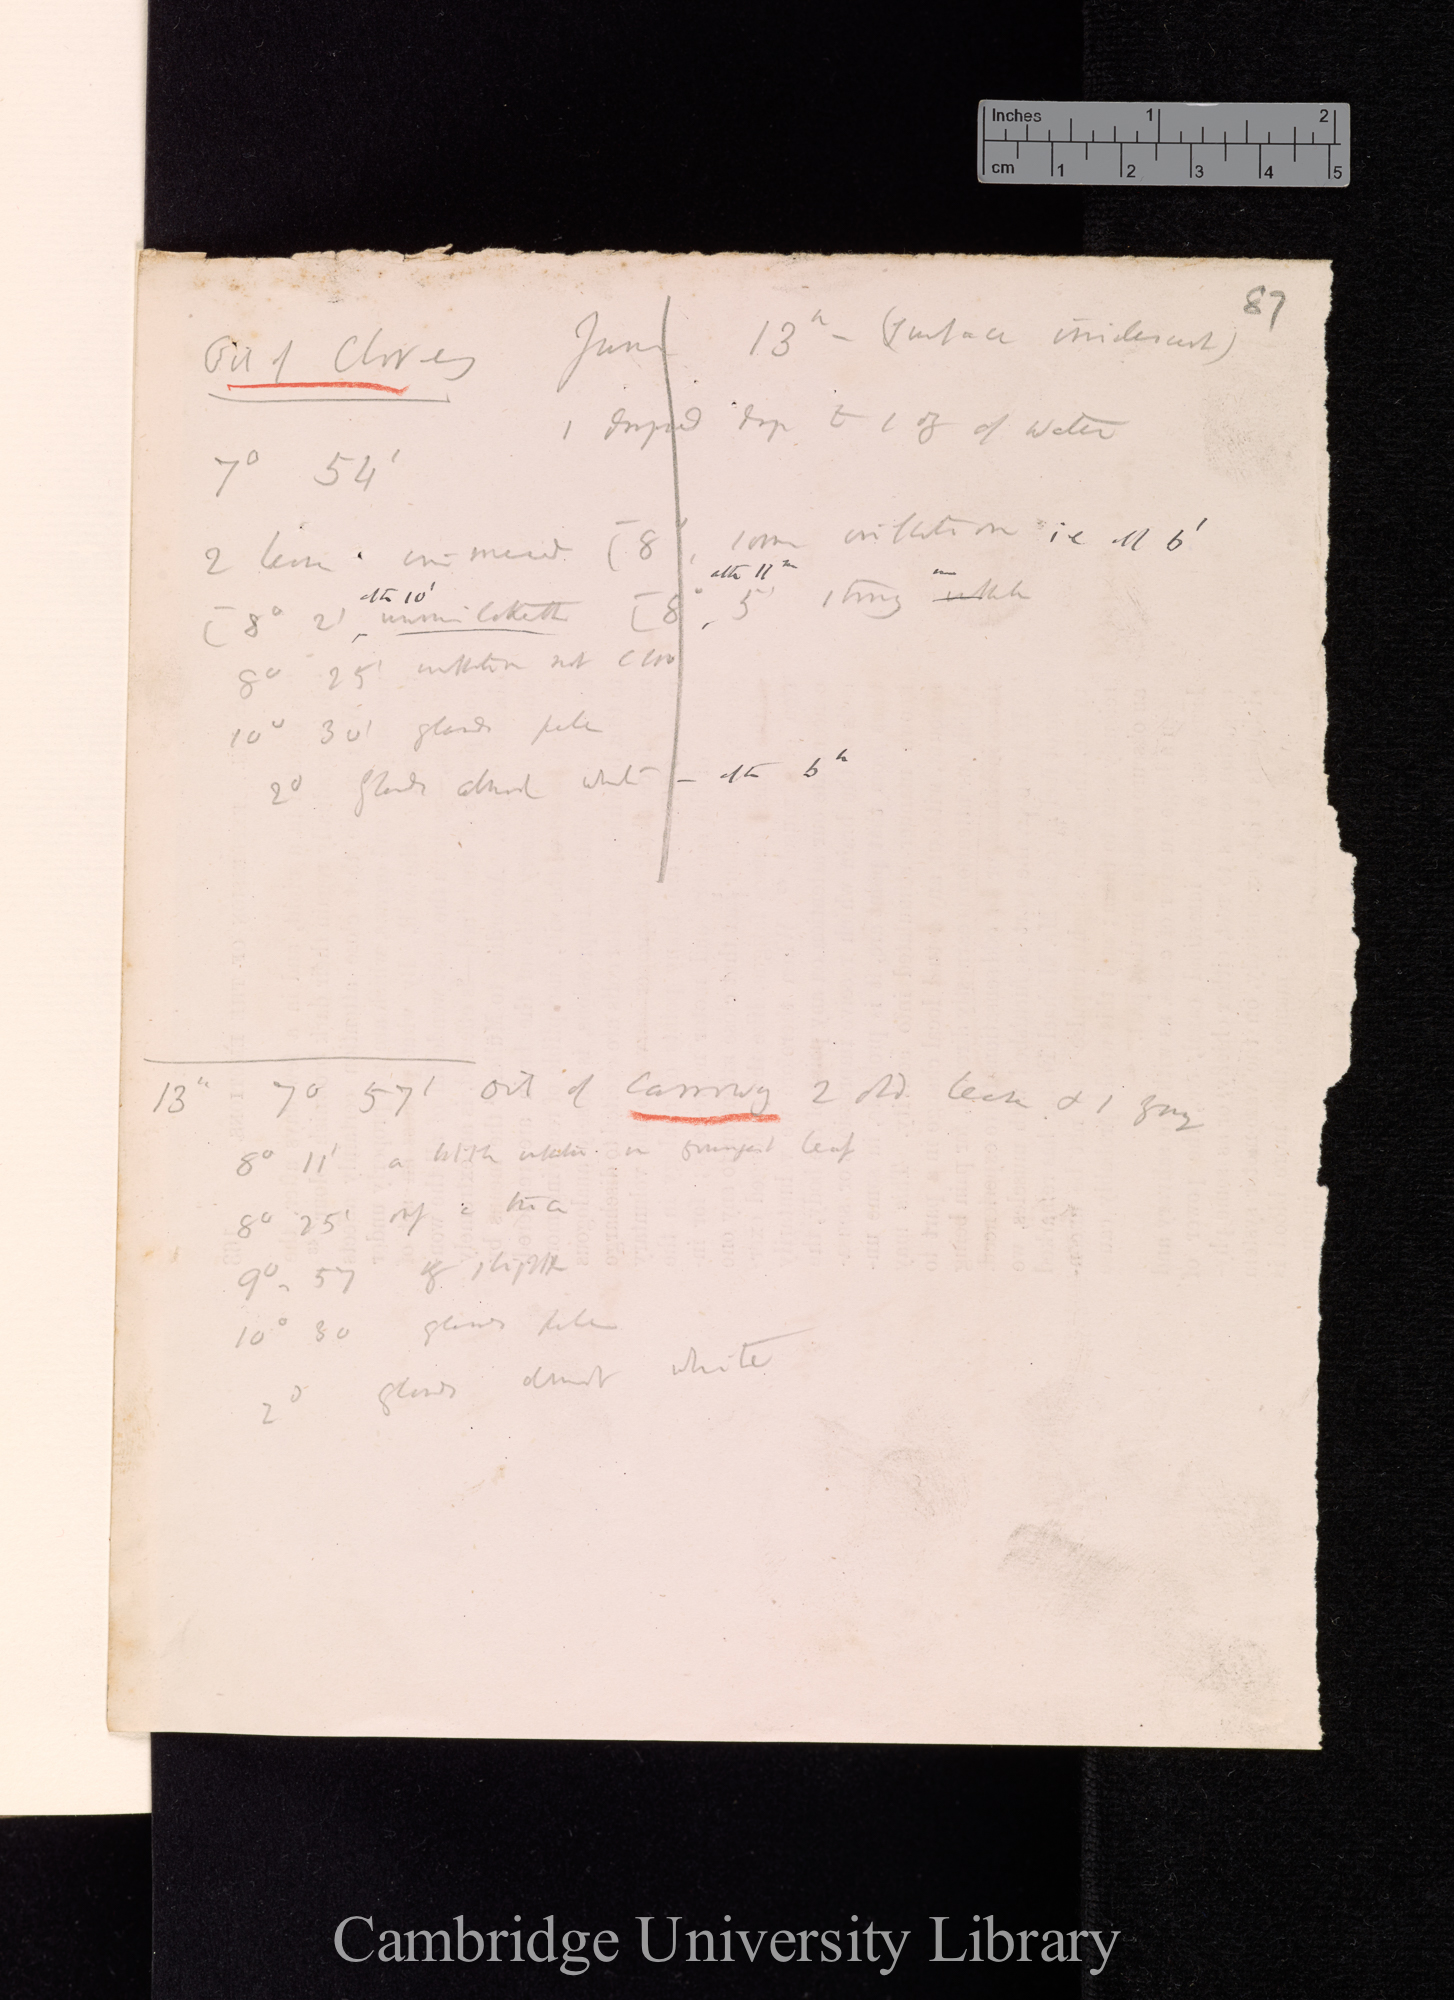 Inches 1 2
cm 1 2 3 4 5
87
Oil of Cloves June 13th – (Surface iridescent)
1 dropped drop to 1 oz of Water
7° 54'
2 leaves immersed [8°, some inflection ie aft 6'
after 10' after 11m
[8° 2', [8°, 5' strong
8° 25' inflection not close
10° 30' glands pale
2° glands almost white – after 6h
13th 7° 57' Oil of Carroway 2 old leaves & 1 young
8° 11' a little inflection in youngest leaf
8° 25'
9°. 57 slightly
10° 30 glands pale
2° glands almost white
Cambridge University Library